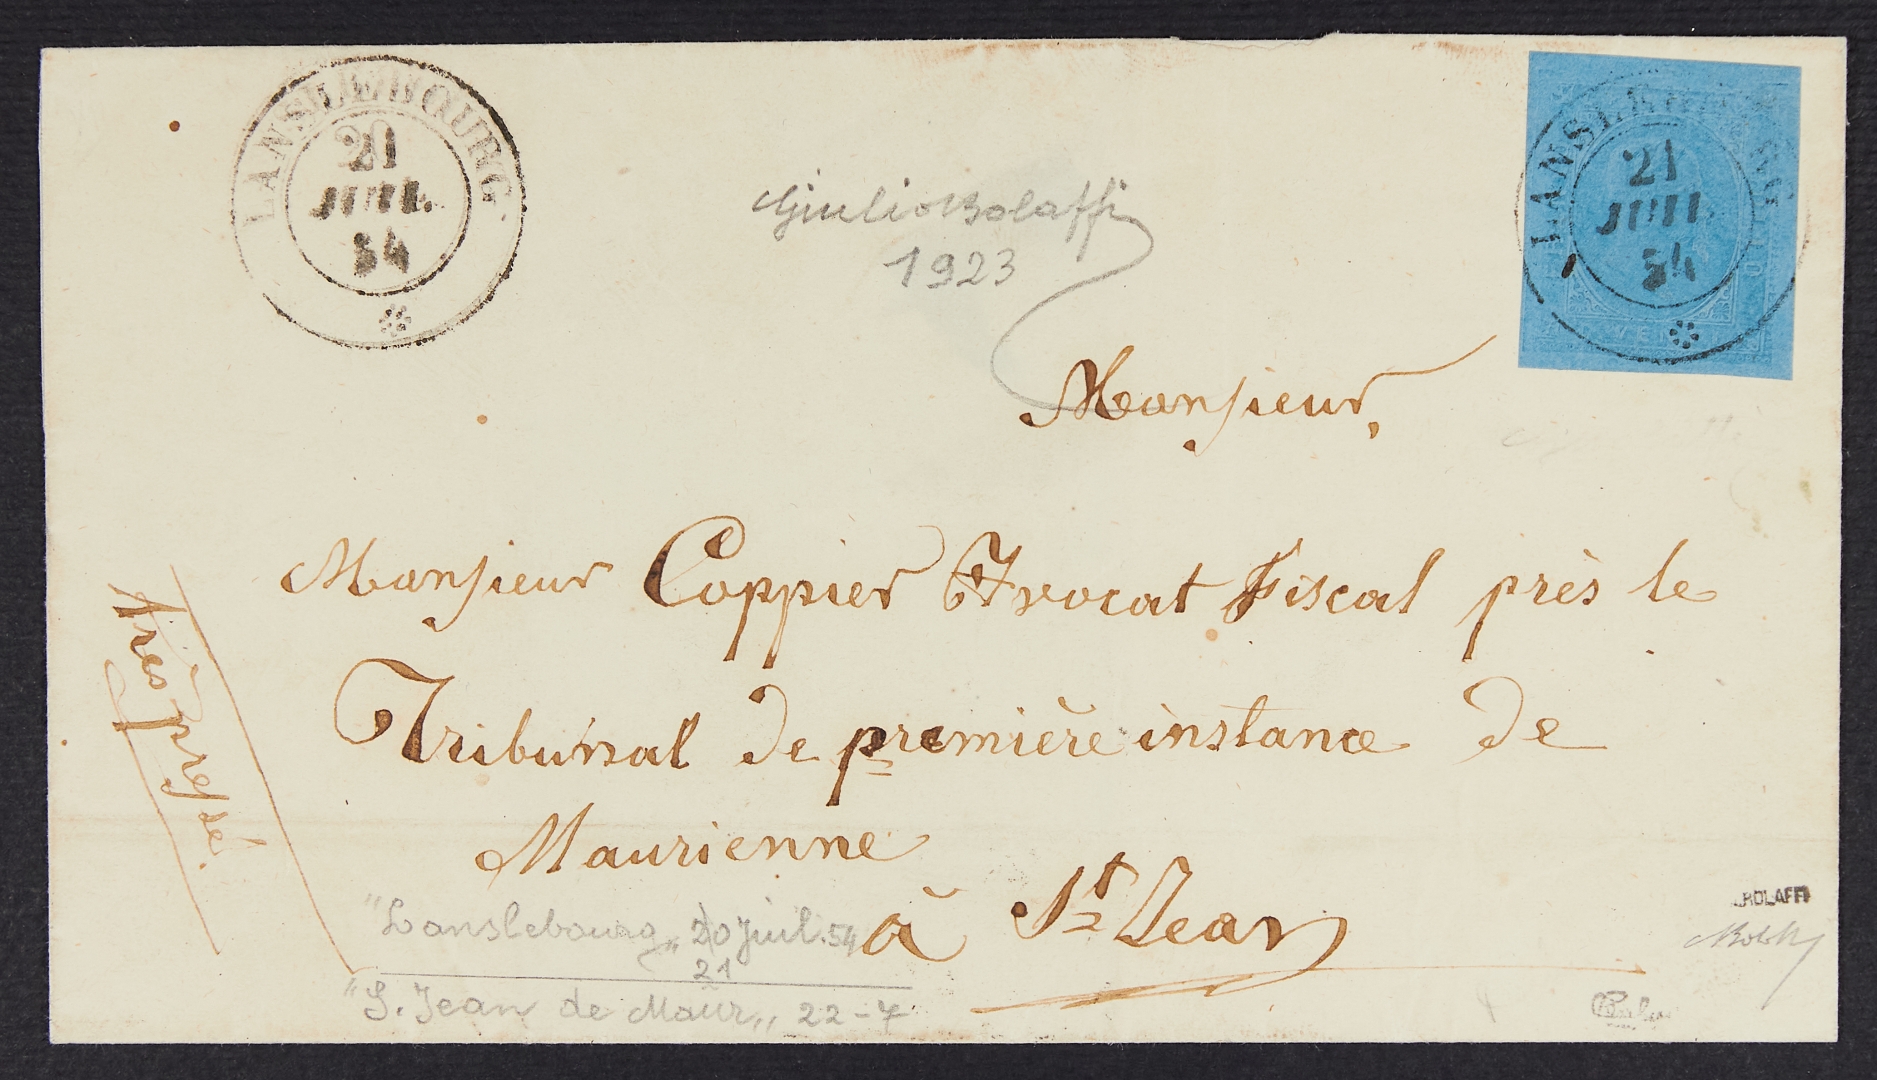 LANSLEBOURG
20
JUIL.
54
LANSLEBOURG
21
JUIL.
54
VEN
Giulio Bolaffi
1923
Monsieur,
Monsieur Coppier Avocat Fiscal près le
Tribunal de première instance de
Maurienne
à St Jean
Très pressé.
"Lanslebourg„ 20 Juil. 54
21
"S. Jean de Maur„ 22-7
.BOLAFFI